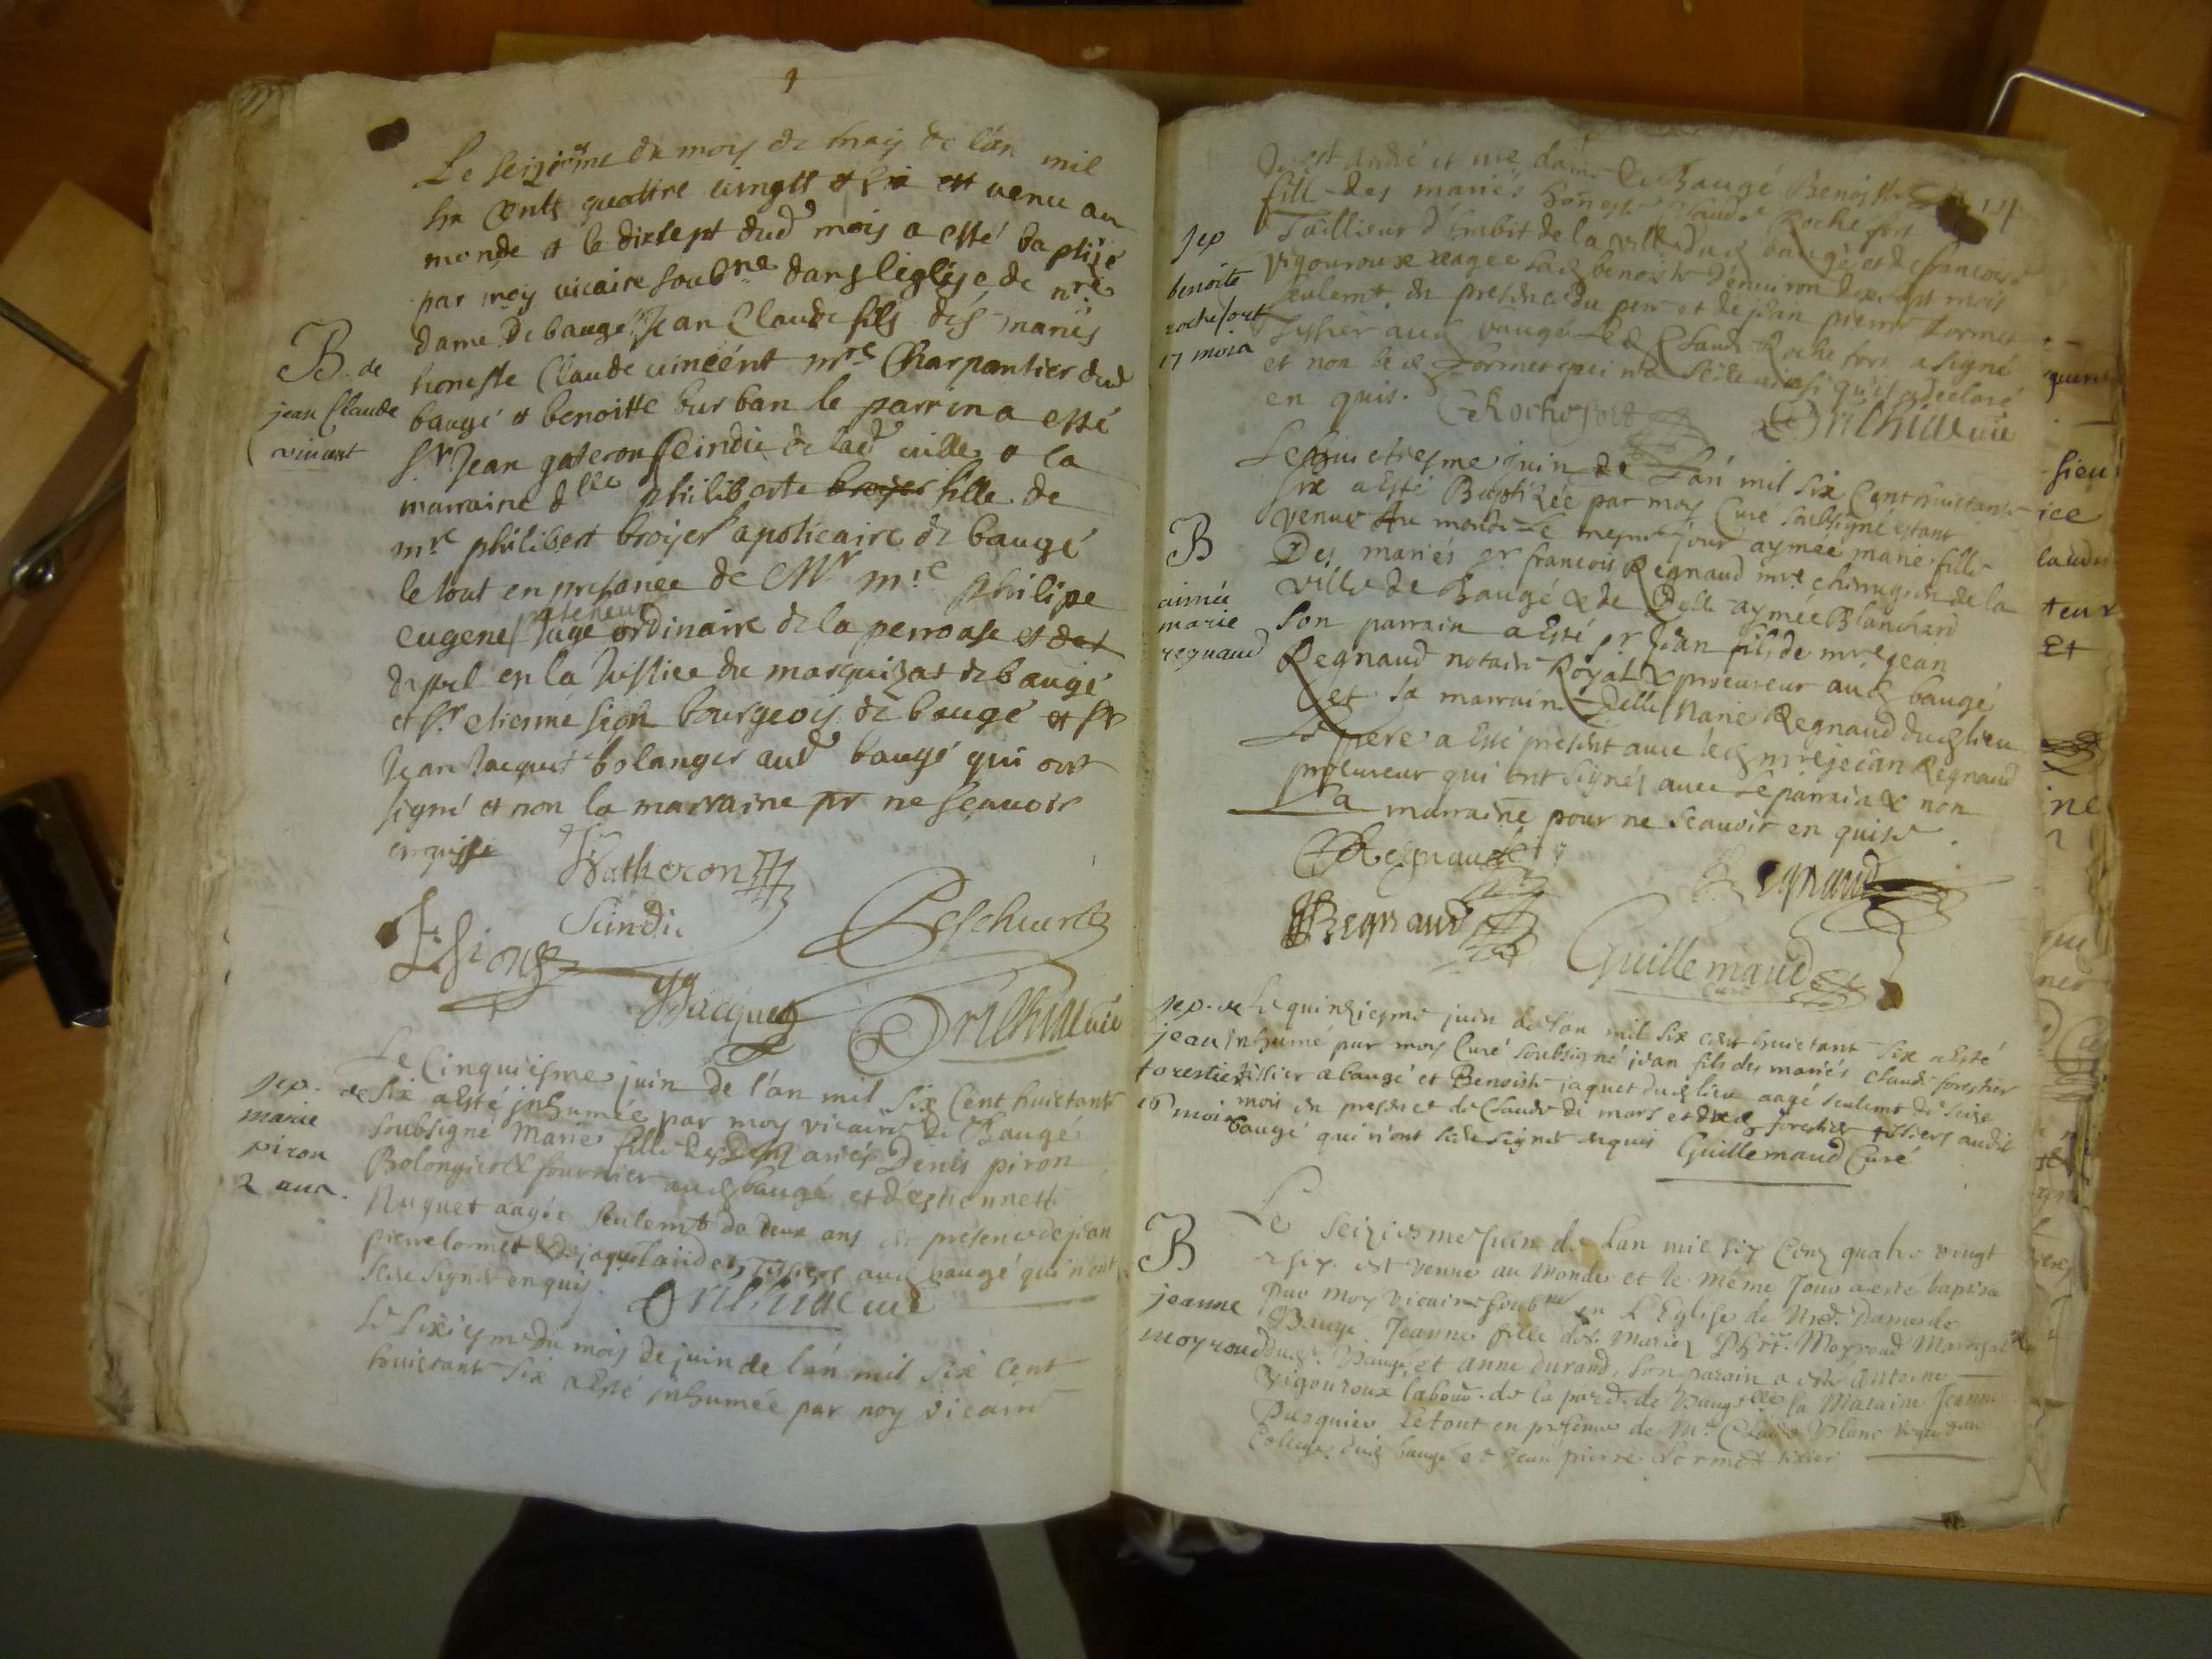 Le seiziesme du mois de may de l'an mil
six cents quattre vingtt et six est venu au
monde et le dixsept dud mois a esté baptizé
par moy vicaire soubne dans leglise de nre
dame de baugé Jean Claude fils des mariés
honeste Claude vincent mre Charpantier dud
baugé et benoitte burban le parrin a esté
sr Jean gateron scindic de lad ville et la
marraine dlle philiberte broyer fille de
mre philibert broyer apoticaire de baugé
le tout en presance de Mr mre philipe
eugene Juge ordinaire de la perrouse et det
en la Justice du marquizat de baugé
et sr etienne sion bourgeois de baugé et sr
Jean Jacquet bolanger aud baugé qui ont
signé et non la marraine pr ne scauoir
enquise
B. de
jean Claude
vincent
Gatheron
Scindic
E Sion
Jacquet
Le Cinquiesme juin de l'an mil six Cent huictante
six a esté inhumée par moy vicaire de Baugé
soubsigné Marie fille des Mariés Denis piron
Bolongier & fournier aud baugé et d'estiennette
Nuguet aagée seulemt de deux ans en presence de jean
pierre lormet & tissiers aud baugé qui n'ont
sceu signer enquis
sep. de
marie
piron
2 ans.
Le sixiesme du mois de juin de l'an mil six Cent
huictante six a esté inhumée par moy vicaire
de Baugé Benoitte
fille des mariés honeste Claude Rochefort
Taillieur d'habit de la ville dud baugé et de francoise
vigouroux aagée lad benoiste d'enuiron dixsept mois
seulemt. en presence du pere et de jean pierre Lormet
Tissier aud baugé led Claude Rochefort a signé
et non led Lormet qui n'a sceu ainsi qu'il a declaré
en quis. C Rochefort
sep
benoite
rochefort
17 mois
Le huictiesme juin de l'an mil six Cent huictante
six a esté Baptizée par moy Curé soubsigné estant
venue au monde le mesme jour aymée marie fille
Des mariés sr francois Regnaud mre chirurgien de la
ville de Baugé & de Delle aymée Blanchard
son parrain a esté sr Jean fils de mre jean
Regnaud notaire Royal & procureur aud baugé
et sa marraine Delle Marie Regnaud dud lieu
Le pere a esté present auec led mre jean Regnaud
procureur qui ont signés auec Le parrain & non
La marraine pour ne scauoir enquise
B
aimée
marie
regnaud
Regnaud
Regnaud
Regnaud
Guillemaud
curé
Le quinziesme juin de l'an mil six cent huictant six a esté
inhumé par moy Curé soubsigné jean fils des mariés claude forestier
tissier a baugé et Benoiste jaquet dud lieu aagé seulemt de seize
mois en presence de Claude de mars et dud forestier tissiers audit
baugé qui n'ont sceu signer enquis Guillemaud Curé
sep. de
jean
forestier
16 mois
Le seiziesme Juin de Lan mil six Cens quatre vingt
et six est venue au monde et le même Jour a esté baptisé
par moy vicaire soubne en L'Eglise de Nre. Dame de
Baugé Jeanne fille des Mariez Moyroud Mareschal
dud. Baugé, et anne durand, son parain a esté Antoine
Vigouroux labour. de la par. de la Maraine Jeanne
Pasquier Le tout en presence de Mre Claude Blanc
College dud baugé et Jean pierre Lormet tissier
B
jeanne
moyroud